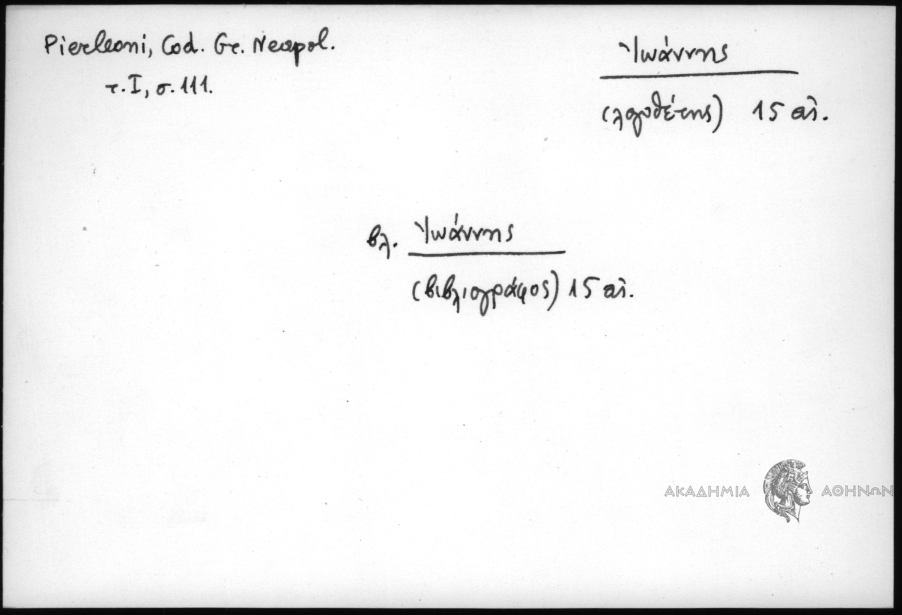 Pierleoni, Cod. Gr. Neapol.
τ. I, σ. 111.
Ἰωάννης
(λογοθέτης) 15 αἰ.
βλ. Ἰωάννης
(βιβλιογράφος) 15 αἰ.
ΑΚΑΔΗΜΙΑ ΑΘΗΝΩΝ